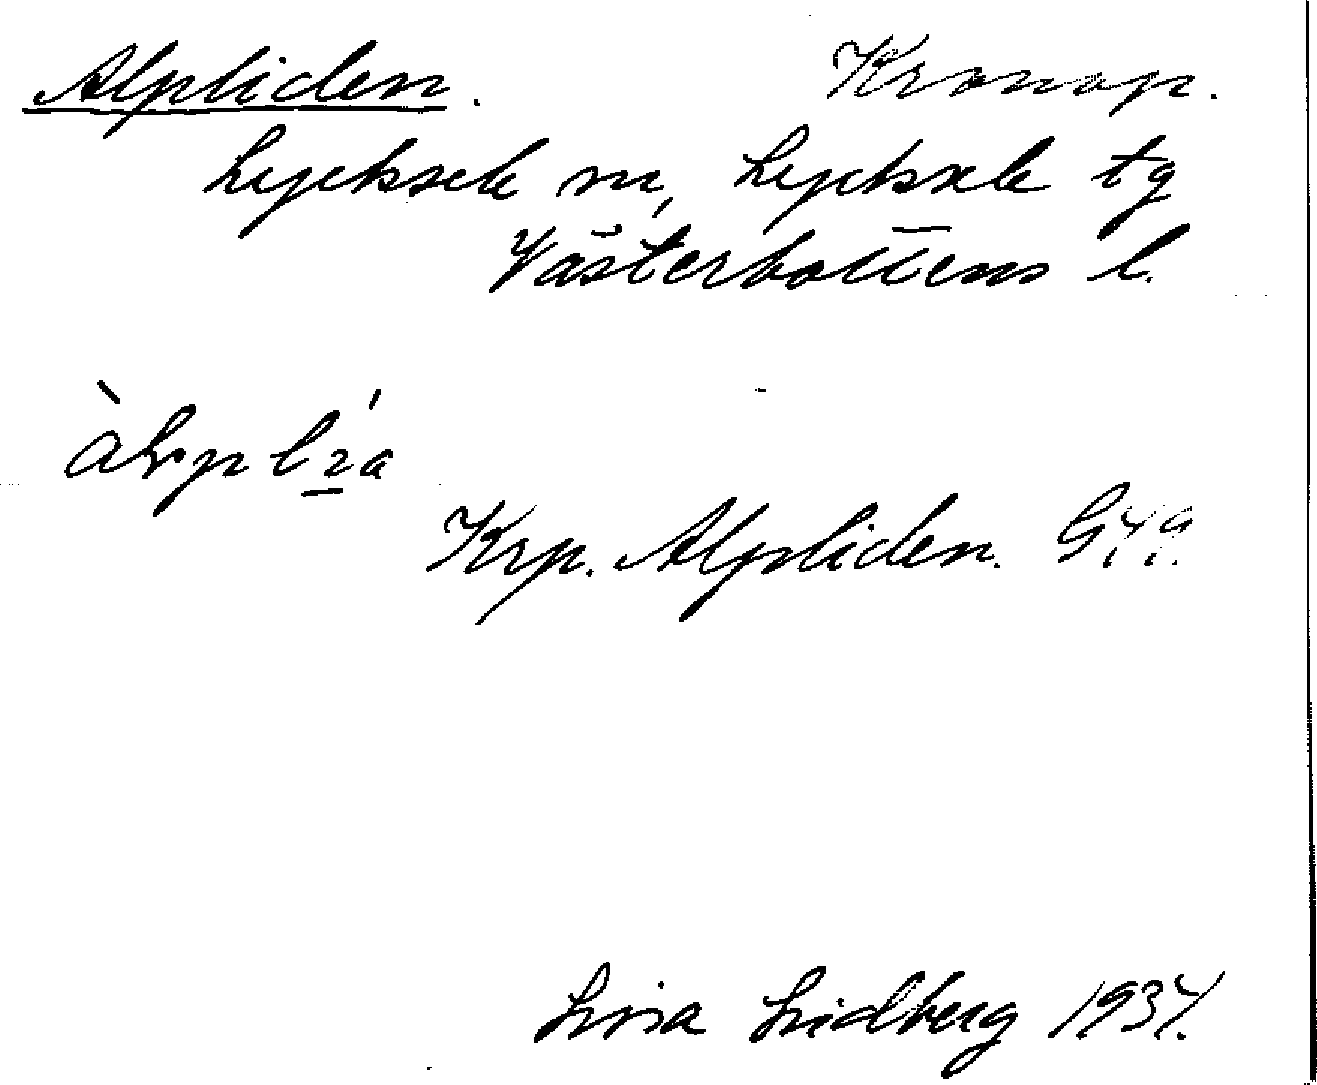 Alpliden. Kronop.
Lycksele m, Lycksele tg
Västerbottens l.
Krp. Alpliden.
Lisa Lidberg 1934.